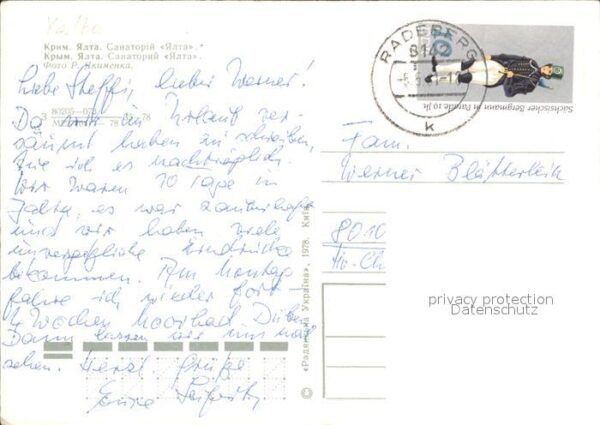 Yalta
Крим. Ялта. Санаторій «Ялта».
Крым. Ялта. Санаторий «Ялта».
Фото Р. Якименка.
Liebe Steffi, lieber Werner!
Da wir im Urlaub ver-
säumt haben zu schreiben,
tue ich es nachträglich.
Wir waren 10 Tage in
Jalta, es war zauberhaft
und wir haben viele
unvergeßliche Eindrücke
bekommen. Am Montag
fahre ich wieder fort
4 Wochen Moorbad Düben
Dann lassen wir uns mal
sehen. Herzl. Grüße
«Радянська Україна», 1978. Київ
©
RADEBERG
k
10
Sächsischer Bergmann zu Parade 19. Jh.
Fam.
Werner
8010
privacy protection
Datenschutz